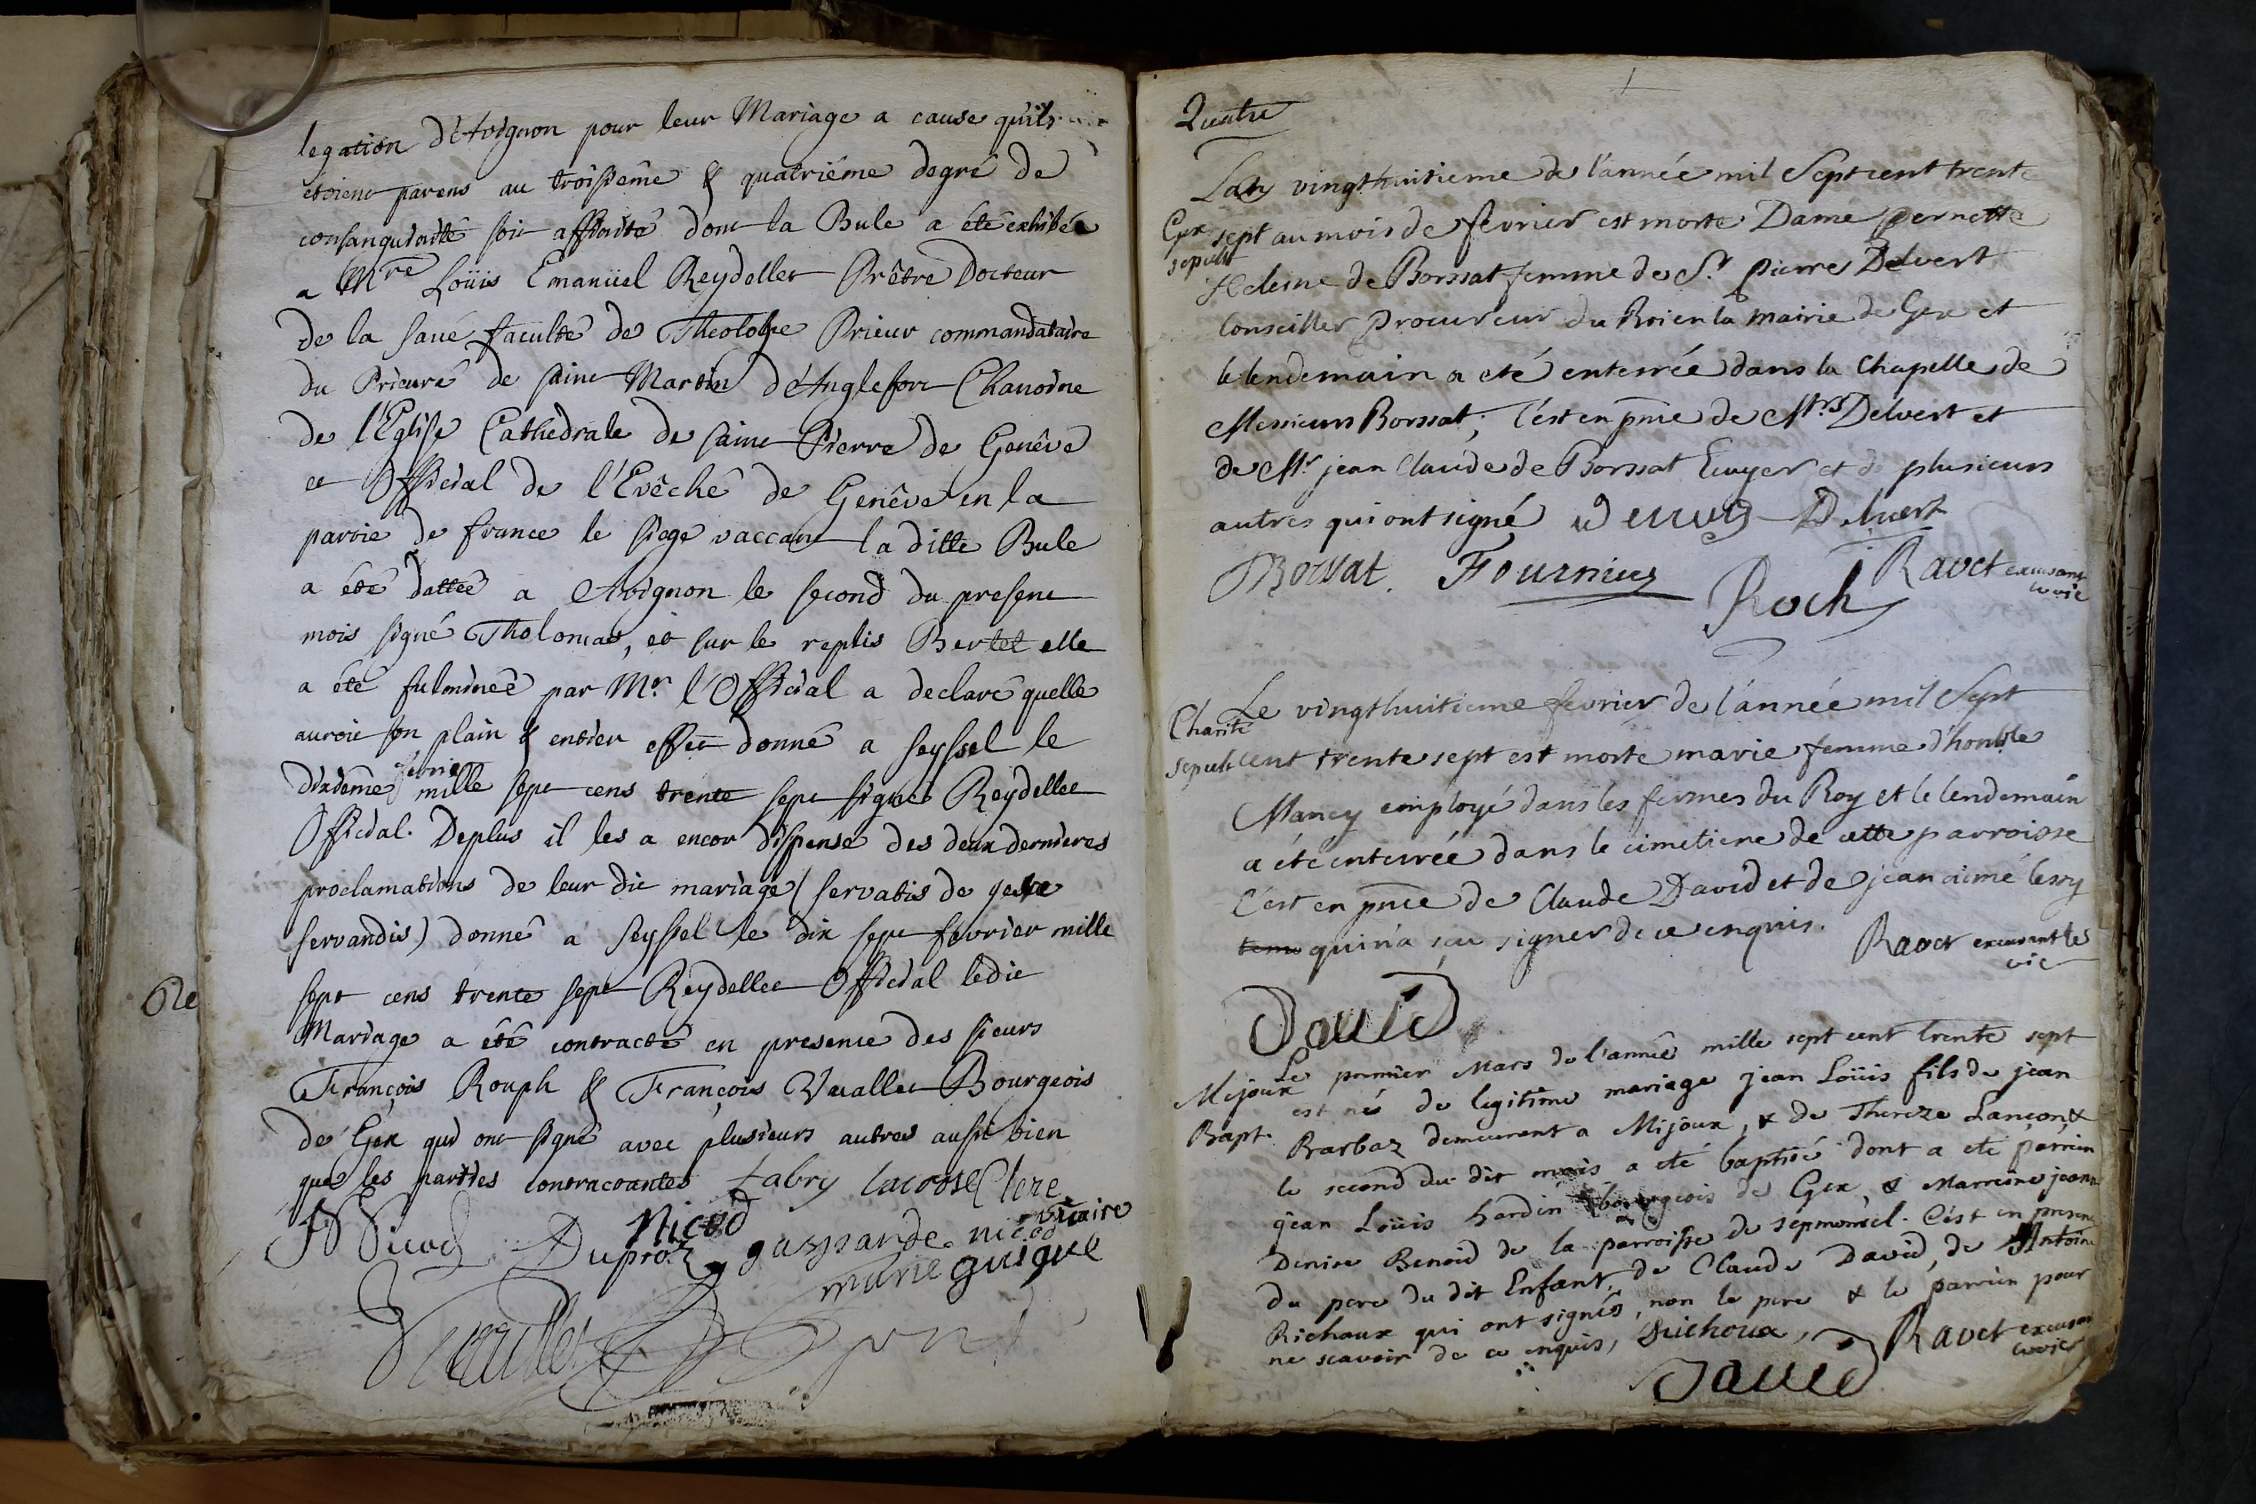 legation d'Avignon pour leur Mariage a cause qu'ils
étoient parens au troisiême & quatriéme degré de
consanguinité soit affinité dont la Bule a été exhibée
a Mre Loüis Emanüel Reydellet Prêtre Docteur
de la faculté de Theologie Prieur commandataire
du Prieuré de saint Martin d'Anglefort Chanoine
de l'Eglise Cathedrale de saint Pierre de Genêve
et Official de l'Evêché de Genêve en la
partie de france le siege vaccant la ditte Bule
a été dattée a Avignon le second du present
mois signé Tholomas, et sur le replis Bertet elle
a été fulminée par Mr. l'Official a declaré quelle
auroit son plain & entier effet donné a seyssel le
dixiême mille sept cens trente sept signé Reydellet
Official. Deplus il les a encor dispensé des deux dernieres
proclamations de leur dit mariage (servatis de jure
servandis) donné a seyssel le dix sept fevrier mille
sept cens trente sept Reydellet Official ledit
Mariage a été contracté en presence des sieurs
François Rouph & François Vuaillet Bourgeois
de Gex qui ont signé avec plusieurs autres aussi bien
que les parties contractantes fabry lacoste Clerc
Nicod vicaire
Nicod Duproz gaspande nicod
marie guigue
Vuaillet
Quatre
Lan vingthuitieme de l'année mil Sept cent trente
Gex sept au mois de fevrier est morte Dame pernette
sepult
Helesne de Borssat femme de Sr. pierre Delvert
Conseiller Procureur du Roi en la mairie de Gex et
le lendemain a eté enterrée dans la Chapelle de
Messieurs Borssat; C'est en pnce de Mrs Delvert et
de Mr. jean Claude de Borssat Ecuyer et de plusieurs
autres qui ont signé Delvert
Borssat Fournier Ravet exerçant
Roch
Le vingthuitieme fevrier de l'année mil Sept
Charité
sepult cent trente sept est morte marie femme d'honble
Mancy employé dans les fermes du Roy et le lendemain
a été enterrée dans le cimetiere de cette parroisse
C'est en pnce de Claude David et de jean aimé lessy
qui n'a sçu signer de ce enquis. Ravet
David
Le premier Mars de l'année mille sept cent trente sept
Mijoux est nés de legitime mariage jean Loüis fils de jean
Bapt. Barbaz demeurent a Mijoux, & de Thereze Lançon &
le second du dit mois a eté baptisé dont a eté parrein
jean Loüis hardin bourgeois de Gex, & Marreine jeanne
Denise Benoid de la parroisse de sepmoncel. C'est en presence
du pere du dit Enfant, de Claude David, de Antoine
Richoux qui ont signés, non le pere & le parrein pour
ne scavoir de ce enquis, Richoux, Ravet
David